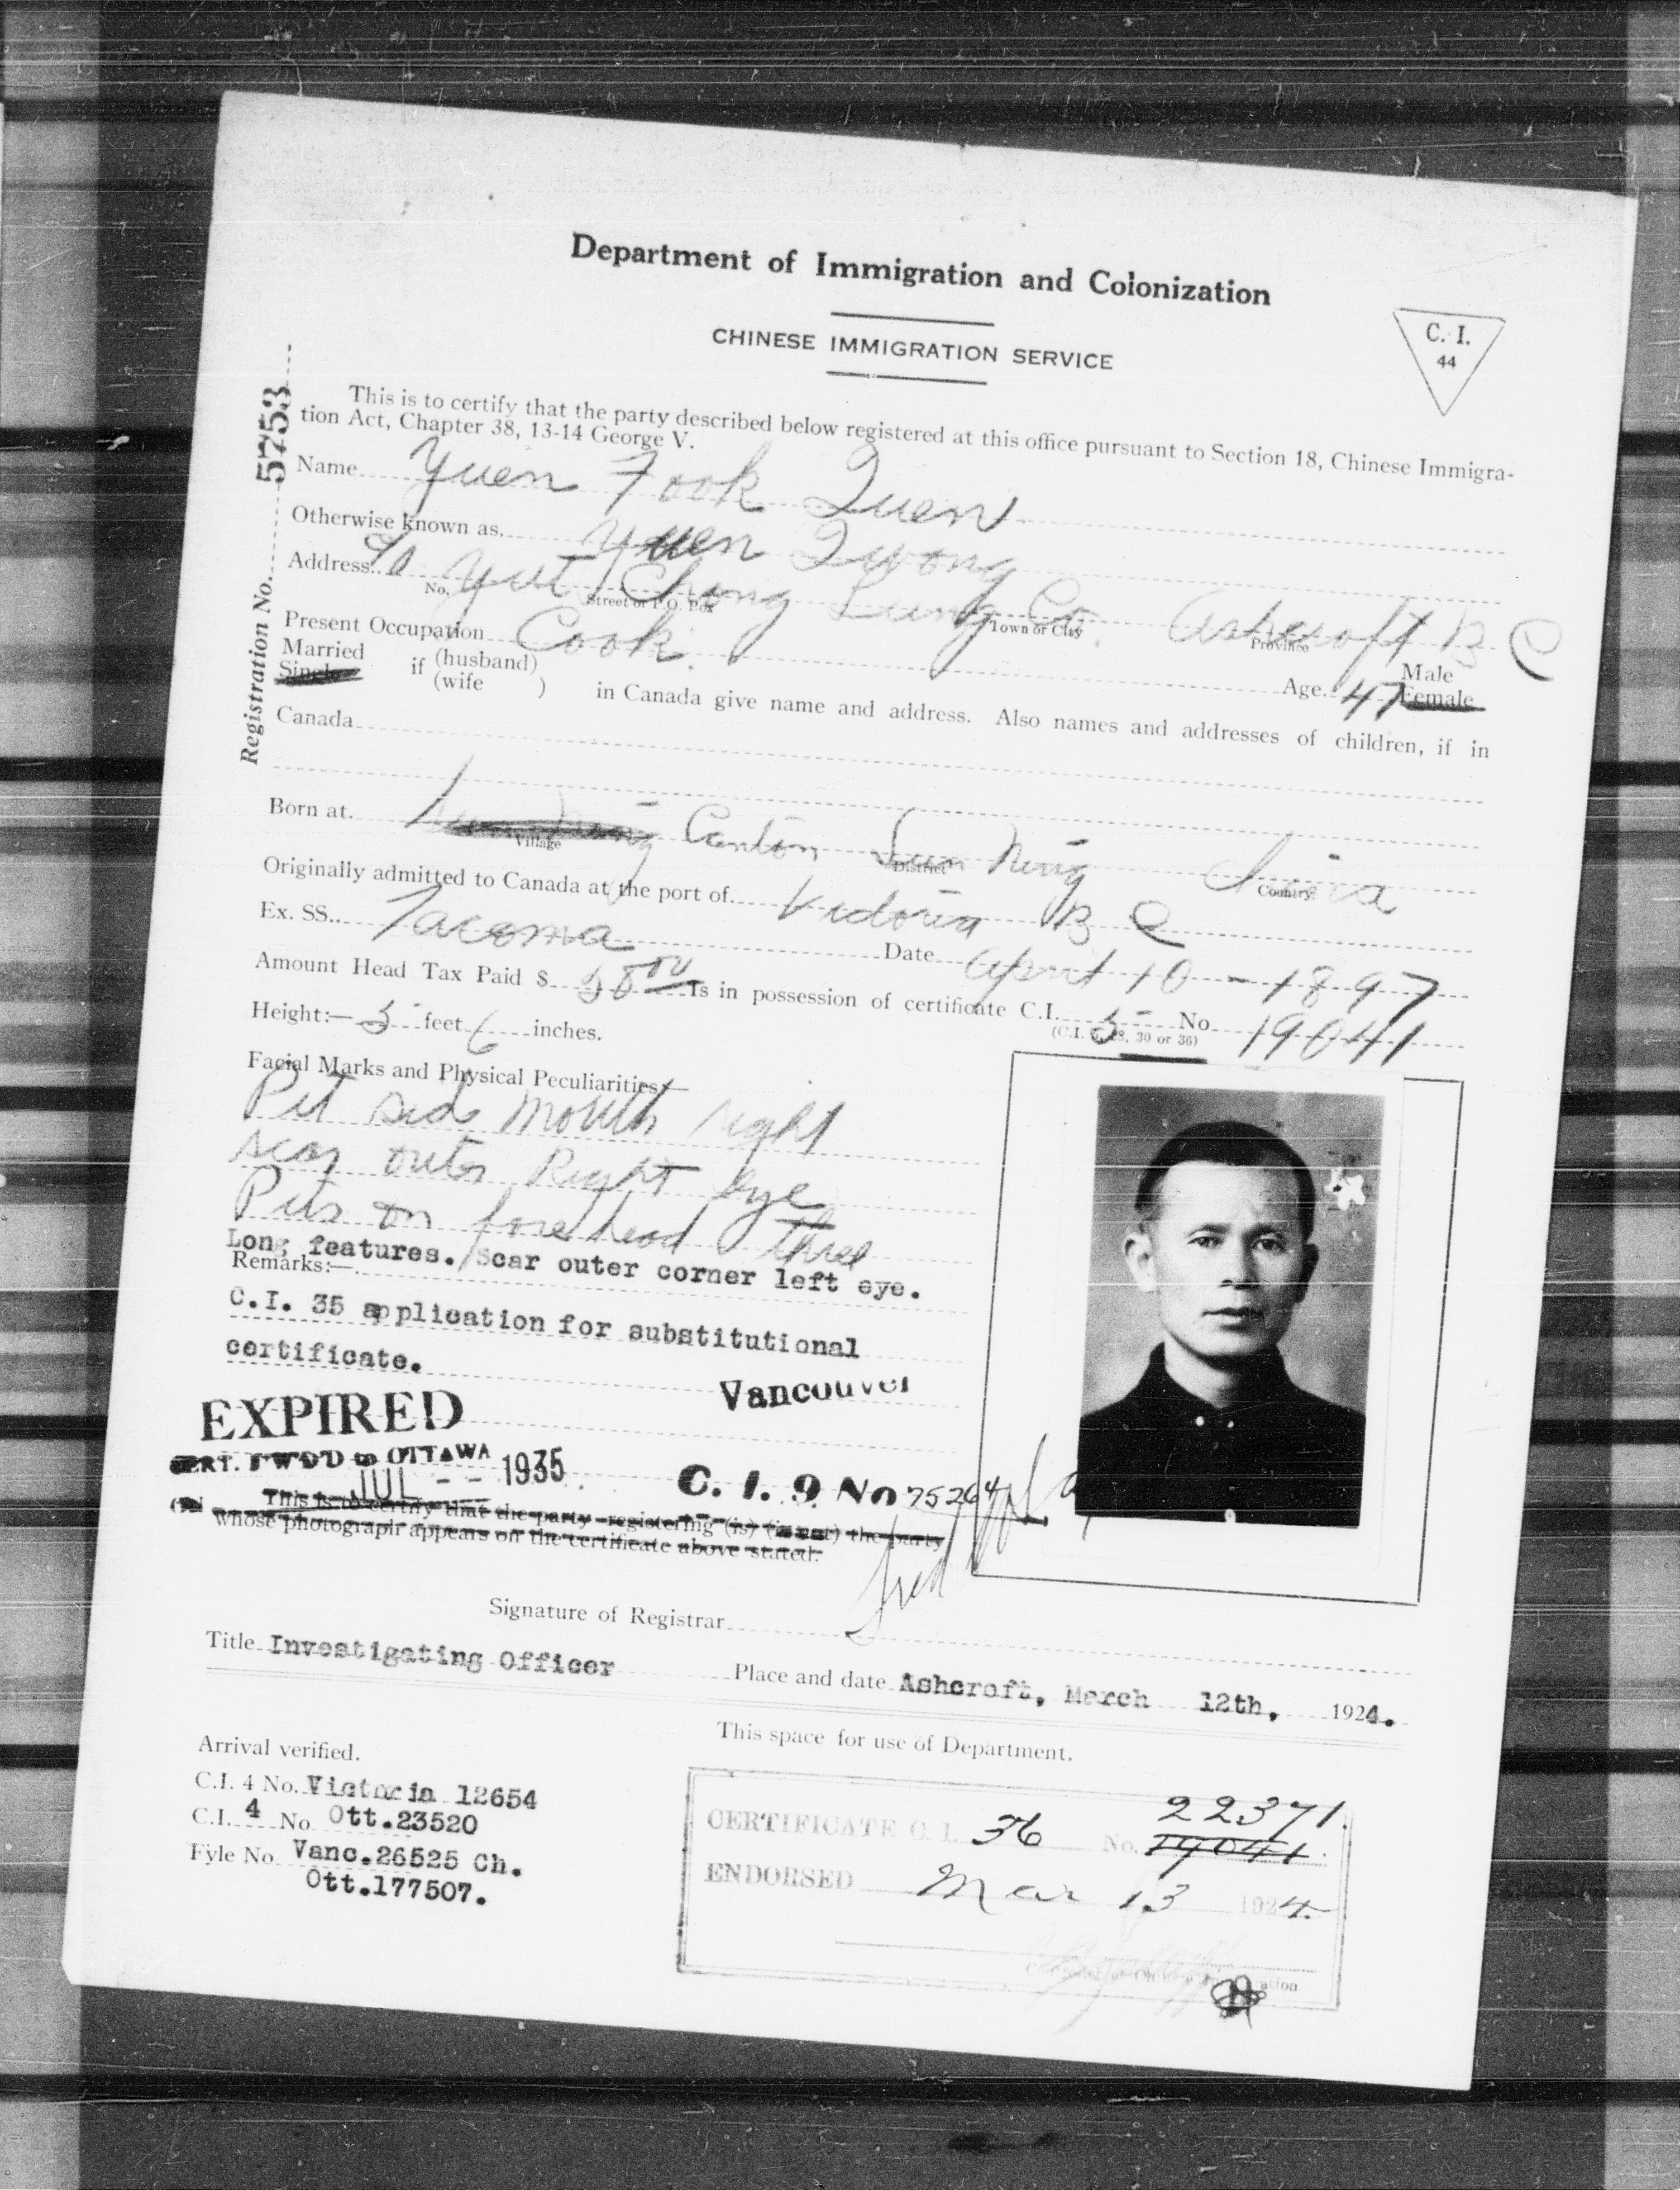 Department of Immigration and Colonization
CHINESE IMMIGRATION SERVICE
C. I.
44
Registration No. 5753
This is to certify that the party described below registered at this office pursuant to Section 18, Chinese Immigra-
tion Act, Chapter 38, 13-14 George V.
Name Yuen Fook Quen
Otherwise known as. Yuen Quong
Address. c/o Yut Chong Lung Co. Ashcroft B C
No. Street or P.O. Box Town or City Province
Present Occupation Cook. Age. 47 Male
Married Female
Single if (husband)
(wife ) in Canada give name and address. Also names and addresses of children, if in
Canada
Born at. Canton Sun Ning China
Village District Country
Originally admitted to Canada at the port of. Victoria B C
Ex. SS. Tacoma Date April 10 - 1897
Amount Head Tax Paid $ 50.00 Is in possession of certificate C.I. 5 No 19041
(C.I. 5, 28, 30 or 36)
Height:— 5 feet 6 inches.
Facial Marks and Physical Peculiarities:—
Pit side mouth right
scar outer Right eye
Pits on forehead three
Long features. Scar outer corner left eye.
Remarks:—
C.I. 35 application for substitutional
certificate.
Vancouver
EXPIRED
CERT. FWD'D to OTTAWA
JUL - - 1935
C. I. 9 No 75264
This is to certify that the party registering (is) (is not) the party
whose photograph appears on the certificate above stated.
Signature of Registrar Fred
Title Investigating Officer Place and date Ashcroft, March 12th, 1924.
Arrival verified.
This space for use of Department.
C.I. 4 No. Victoria 12654
C.I. 4 No. Ott.23520
Fyle No. Vanc.26525 Ch.
Ott.177507.
22371.
CERTIFICATE C. I. 36 No. 19041.
ENDORSED Mar 13 1924